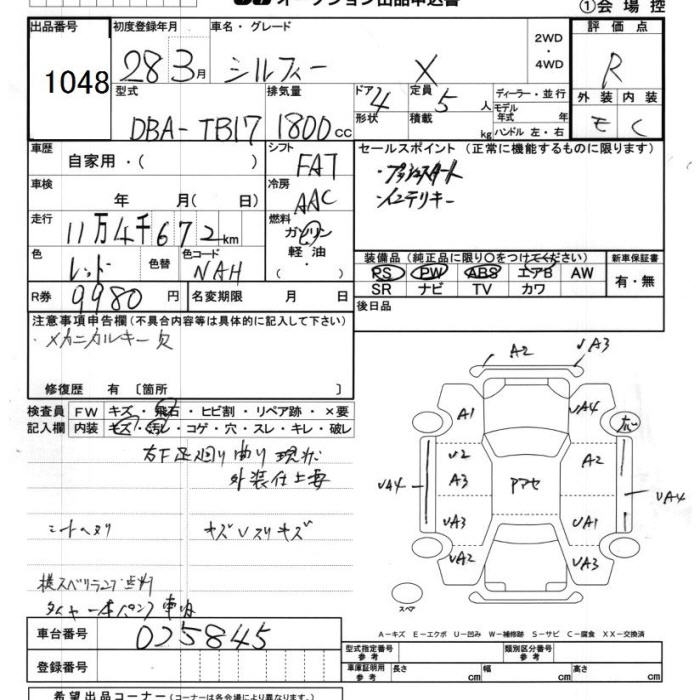 オークション出品申込書
①会場控
出品番号 初度登録年月 車名・グレード 評価点
1048 28 3月 シルフィー X 2WD・4WD R
型式 排気量 ドア 4 形状 定員 5人 積載 kg ディーラー・並行 モデル年式 年 ハンドル 左・右 外装 内装
DBA-TB17 1800cc E C
車歴 自家用・( ) シフト FAT セールスポイント(正常に機能するものに限ります)
・プッシュスタート
・インテリキー
車検 年 月( 日) 冷房 AAC
走行 11万4千672km 燃料 ガソリン 軽油 ( ・ )
色 レッド 色替 色コード NAH
装備品(純正品に限り〇をつけてください) 新車保証書
PS PW ABS エアB AW 有・無
SR ナビ TV カワ
R券 9980円 名変期限 月 日 後日品
注意事項申告欄(不具合内容等は具体的に記入して下さい)
・メカニカルキー欠
修復歴 有〔箇所 〕
検査員 FW キズ・飛石・ヒビ割・リペア跡・×要
記入欄 内装 キズ・汚レ・コゲ・穴・スレ・キレ・破レ
右下足廻り曲り 現状
外装仕上要
シートヘタリ キズUスリキズ
横スベリランプ点灯
タイヤ一本パンク
A2 UA3
A1 UA4
U2 A2
UA4 A3 Pマセ UA4
UA3 UA1
UA2 UA3
スペア
A-キズ E-エクボ U-凹み W-補修跡 S-サビ C-腐食 XX-交換済
車台番号 025845
登録番号
型式指定番号 参考 類別区分番号 参考
車庫証明用 参考 長さ cm 幅 cm 高さ cm
希望出品コーナー(コーナーは各会場により異なります)